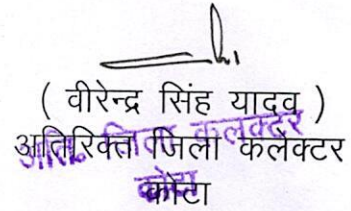 ( वीरेन्द्र सिंह यादव )
अतिरिक्त जिला कलेक्टर
कोटा